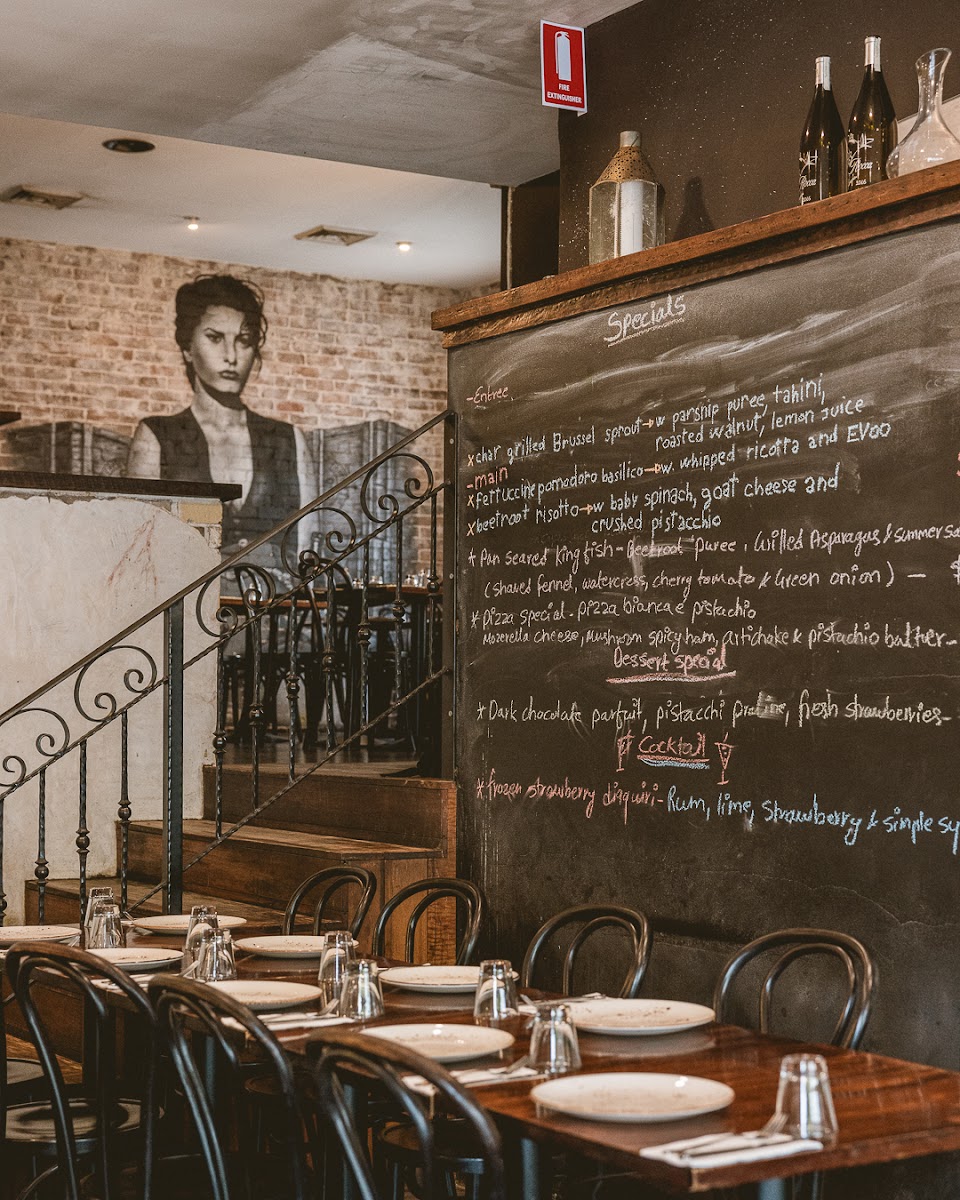 FIRE
EXTINGUISHER
Specials
-Entree.
x char grilled Brussel sprout→w parsnip puree, tahini,
roasted walnut, lemon juice
-main
x fettuccine pomodoro basilico→w. whipped ricotta and EVOO
x beetroot risotto→w baby spinach, goat cheese and
crushed pistacchio
* Pan seared king fish - Beetroot puree, Grilled Asparagus & summer sa
(shaved fennel, watercress, cherry tomato & Green onion) — $
* Pizza special - Pizza bianca e pistachio
Mozerella cheese, Mushroom spicy ham, artichake & pistachio butter-
Dessert special
* Dark chocolate parfait, pistacchi praline, fresh strawberries-
Cocktail
* frozen strawberry diquiri- Rum, lime, strawberry & simple sy